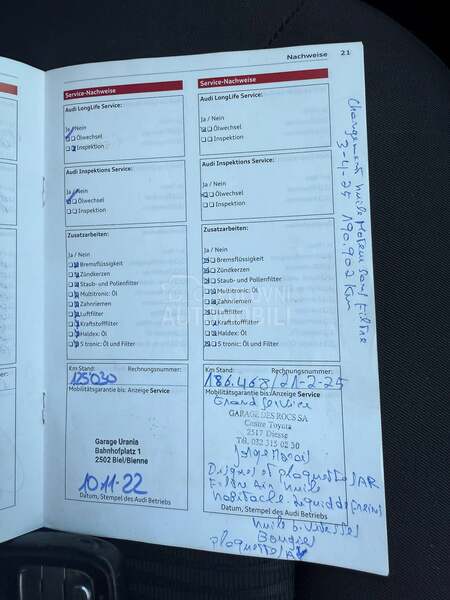 Nachweise 21
Service-Nachweise
Audi LongLife Service:
Ja / Nein
Ölwechsel
Inspektion
Audi Inspektions Service:
Ja / Nein
Ölwechsel
Inspektion
Zusatzarbeiten:
Ja / Nein
Bremsflüssigkeit
Zündkerzen
Staub- und Pollenfilter
Multitronic: Öl
Zahnriemen
Luftfilter
Kraftstofffilter
Haldex: Öl
S tronic: Öl und Filter
Km Stand: Rechnungsnummer:
125'030
Mobilitätsgarantie bis: Anzeige Service
Garage Urania
Bahnhofplatz 1
2502 Biel/Bienne
10.11.22
Datum, Stempel des Audi Betriebs
Service-Nachweise
Audi LongLife Service:
Ja / Nein
Ölwechsel
Inspektion
Audi Inspektions Service:
Ja / Nein
Ölwechsel
Inspektion
Zusatzarbeiten:
Ja / Nein
Bremsflüssigkeit
Zündkerzen
Staub- und Pollenfilter
Multitronic: Öl
Zahnriemen
Luftfilter
Kraftstofffilter
Haldex: Öl
S tronic: Öl und Filter
Km Stand: Rechnungsnummer:
186.468/21-2-25
Mobilitätsgarantie bis: Anzeige Service
Grand Service
GARAGE DES ROCS SA
Centre Toyota
2517 Diesse
Tél. 032 315 02 30
Disques et plaquettes AR
Filtre Air huile
habitacle. liquide freins
Datum, Stempel des Audi Betriebs
huile b. vitesses
Bougies
plaquettes
Changement huile Moteur
3-4-25 190.902 Km